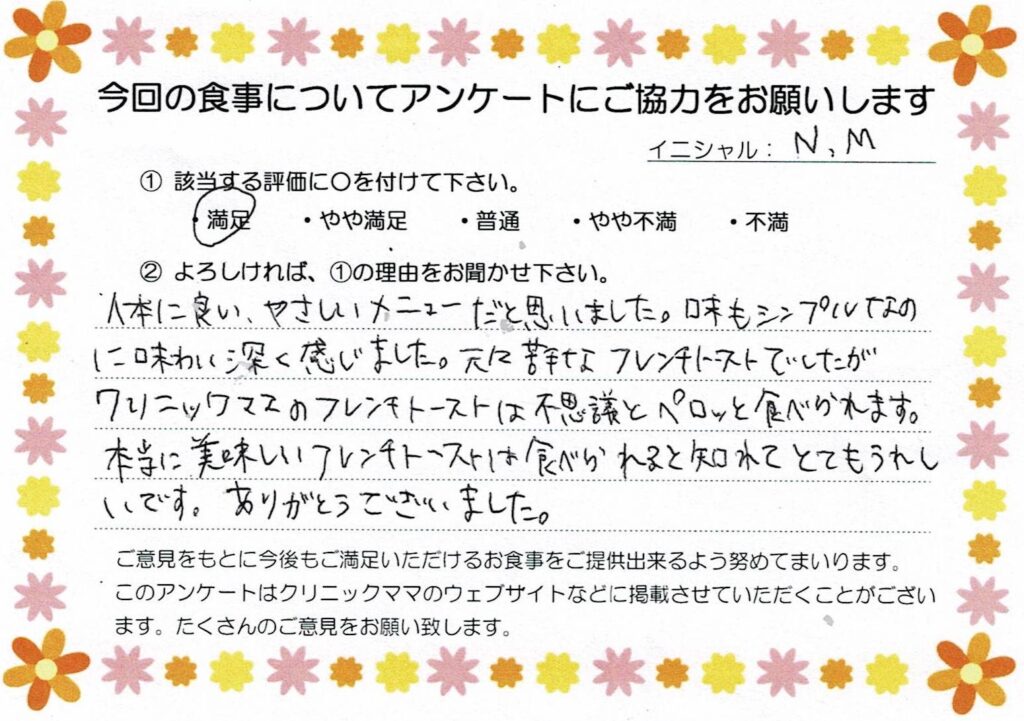 今回の食事についてアンケートにご協力をお願いします
イニシャル： N、M
① 該当する評価に○を付けて下さい。
・満足 ・やや満足 ・普通 ・やや不満 ・不満
② よろしければ、①の理由をお聞かせ下さい。
体に良い、やさしいメニューだと思いました。味もシンプルなの
に味わい深く感じました。元々苦手なフレンチトーストでしたが
クリニックママのフレンチトーストは不思議とペロッと食べられます。
本当に美味しいフレンチトーストは食べられると知れてとてもうれし
いです。ありがとうございました。
ご意見をもとに今後もご満足いただけるお食事をご提供出来るよう努めてまいります。
このアンケートはクリニックママのウェブサイトなどに掲載させていただくことがござい
ます。たくさんのご意見をお願い致します。